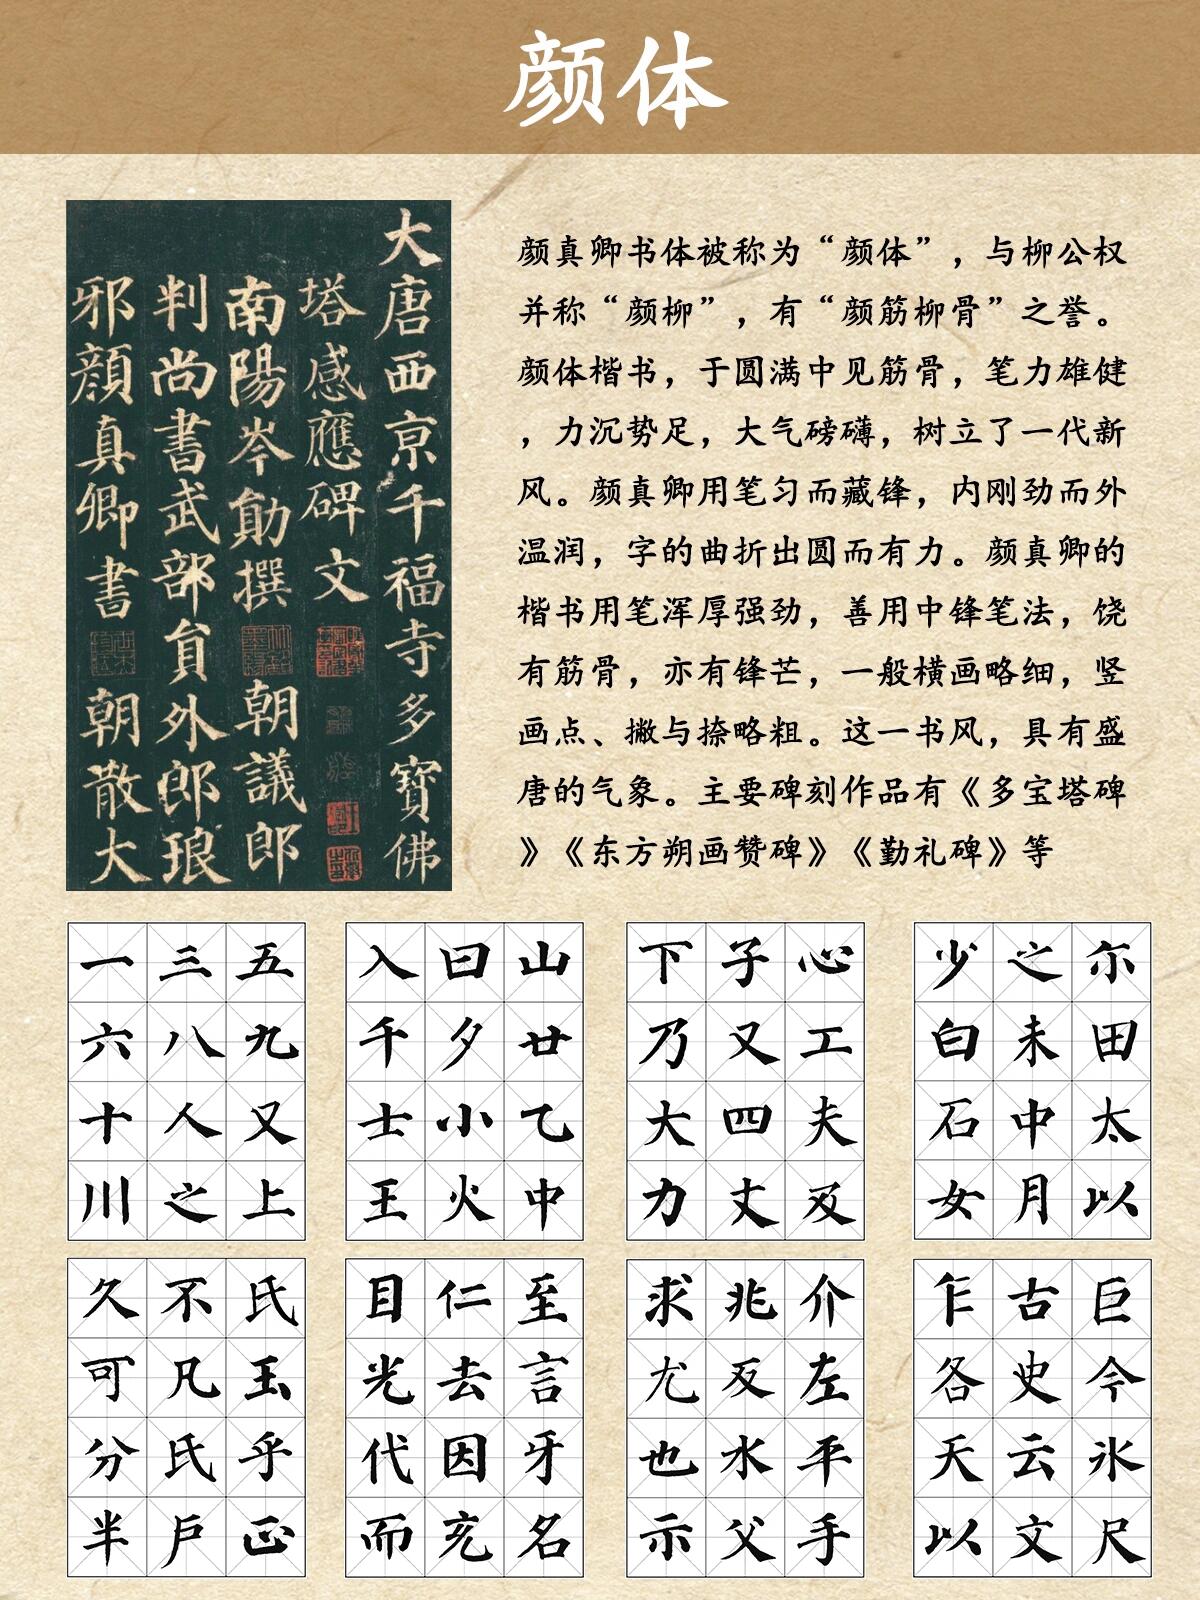 颜体
大唐西京千福寺多寶佛
塔感應碑文
南陽岑勛撰 朝議郎
判尚書武部員外郎琅
邪顔真卿書 朝散大
颜真卿书体被称为“颜体”，与柳公权
并称“颜柳”，有“颜筋柳骨”之誉。
颜体楷书，于圆满中见筋骨，笔力雄健
，力沉势足，大气磅礴，树立了一代新
风。颜真卿用笔匀而藏锋，内刚劲而外
温润，字的曲折出圆而有力。颜真卿的
楷书用笔浑厚强劲，善用中锋笔法，饶
有筋骨，亦有锋芒，一般横画略细，竖
画点、撇与捺略粗。这一书风，具有盛
唐的气象。主要碑刻作品有《多宝塔碑
》《东方朔画赞碑》《勤礼碑》等
一三五
六八九
十人又
川之上
入曰山
千夕廿
士小乙
王火中
下子心
乃又工
大四夫
力丈及
少之尔
白未田
石中太
女月以
久不氏
可凡玉
分氏乎
半户正
目仁至
光去言
代因牙
而充名
求兆介
尤反左
也水平
示父手
乍古巨
各史今
天云氷
以文尺